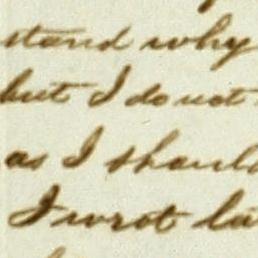 stand why
but I do not
as I should
I wrot la